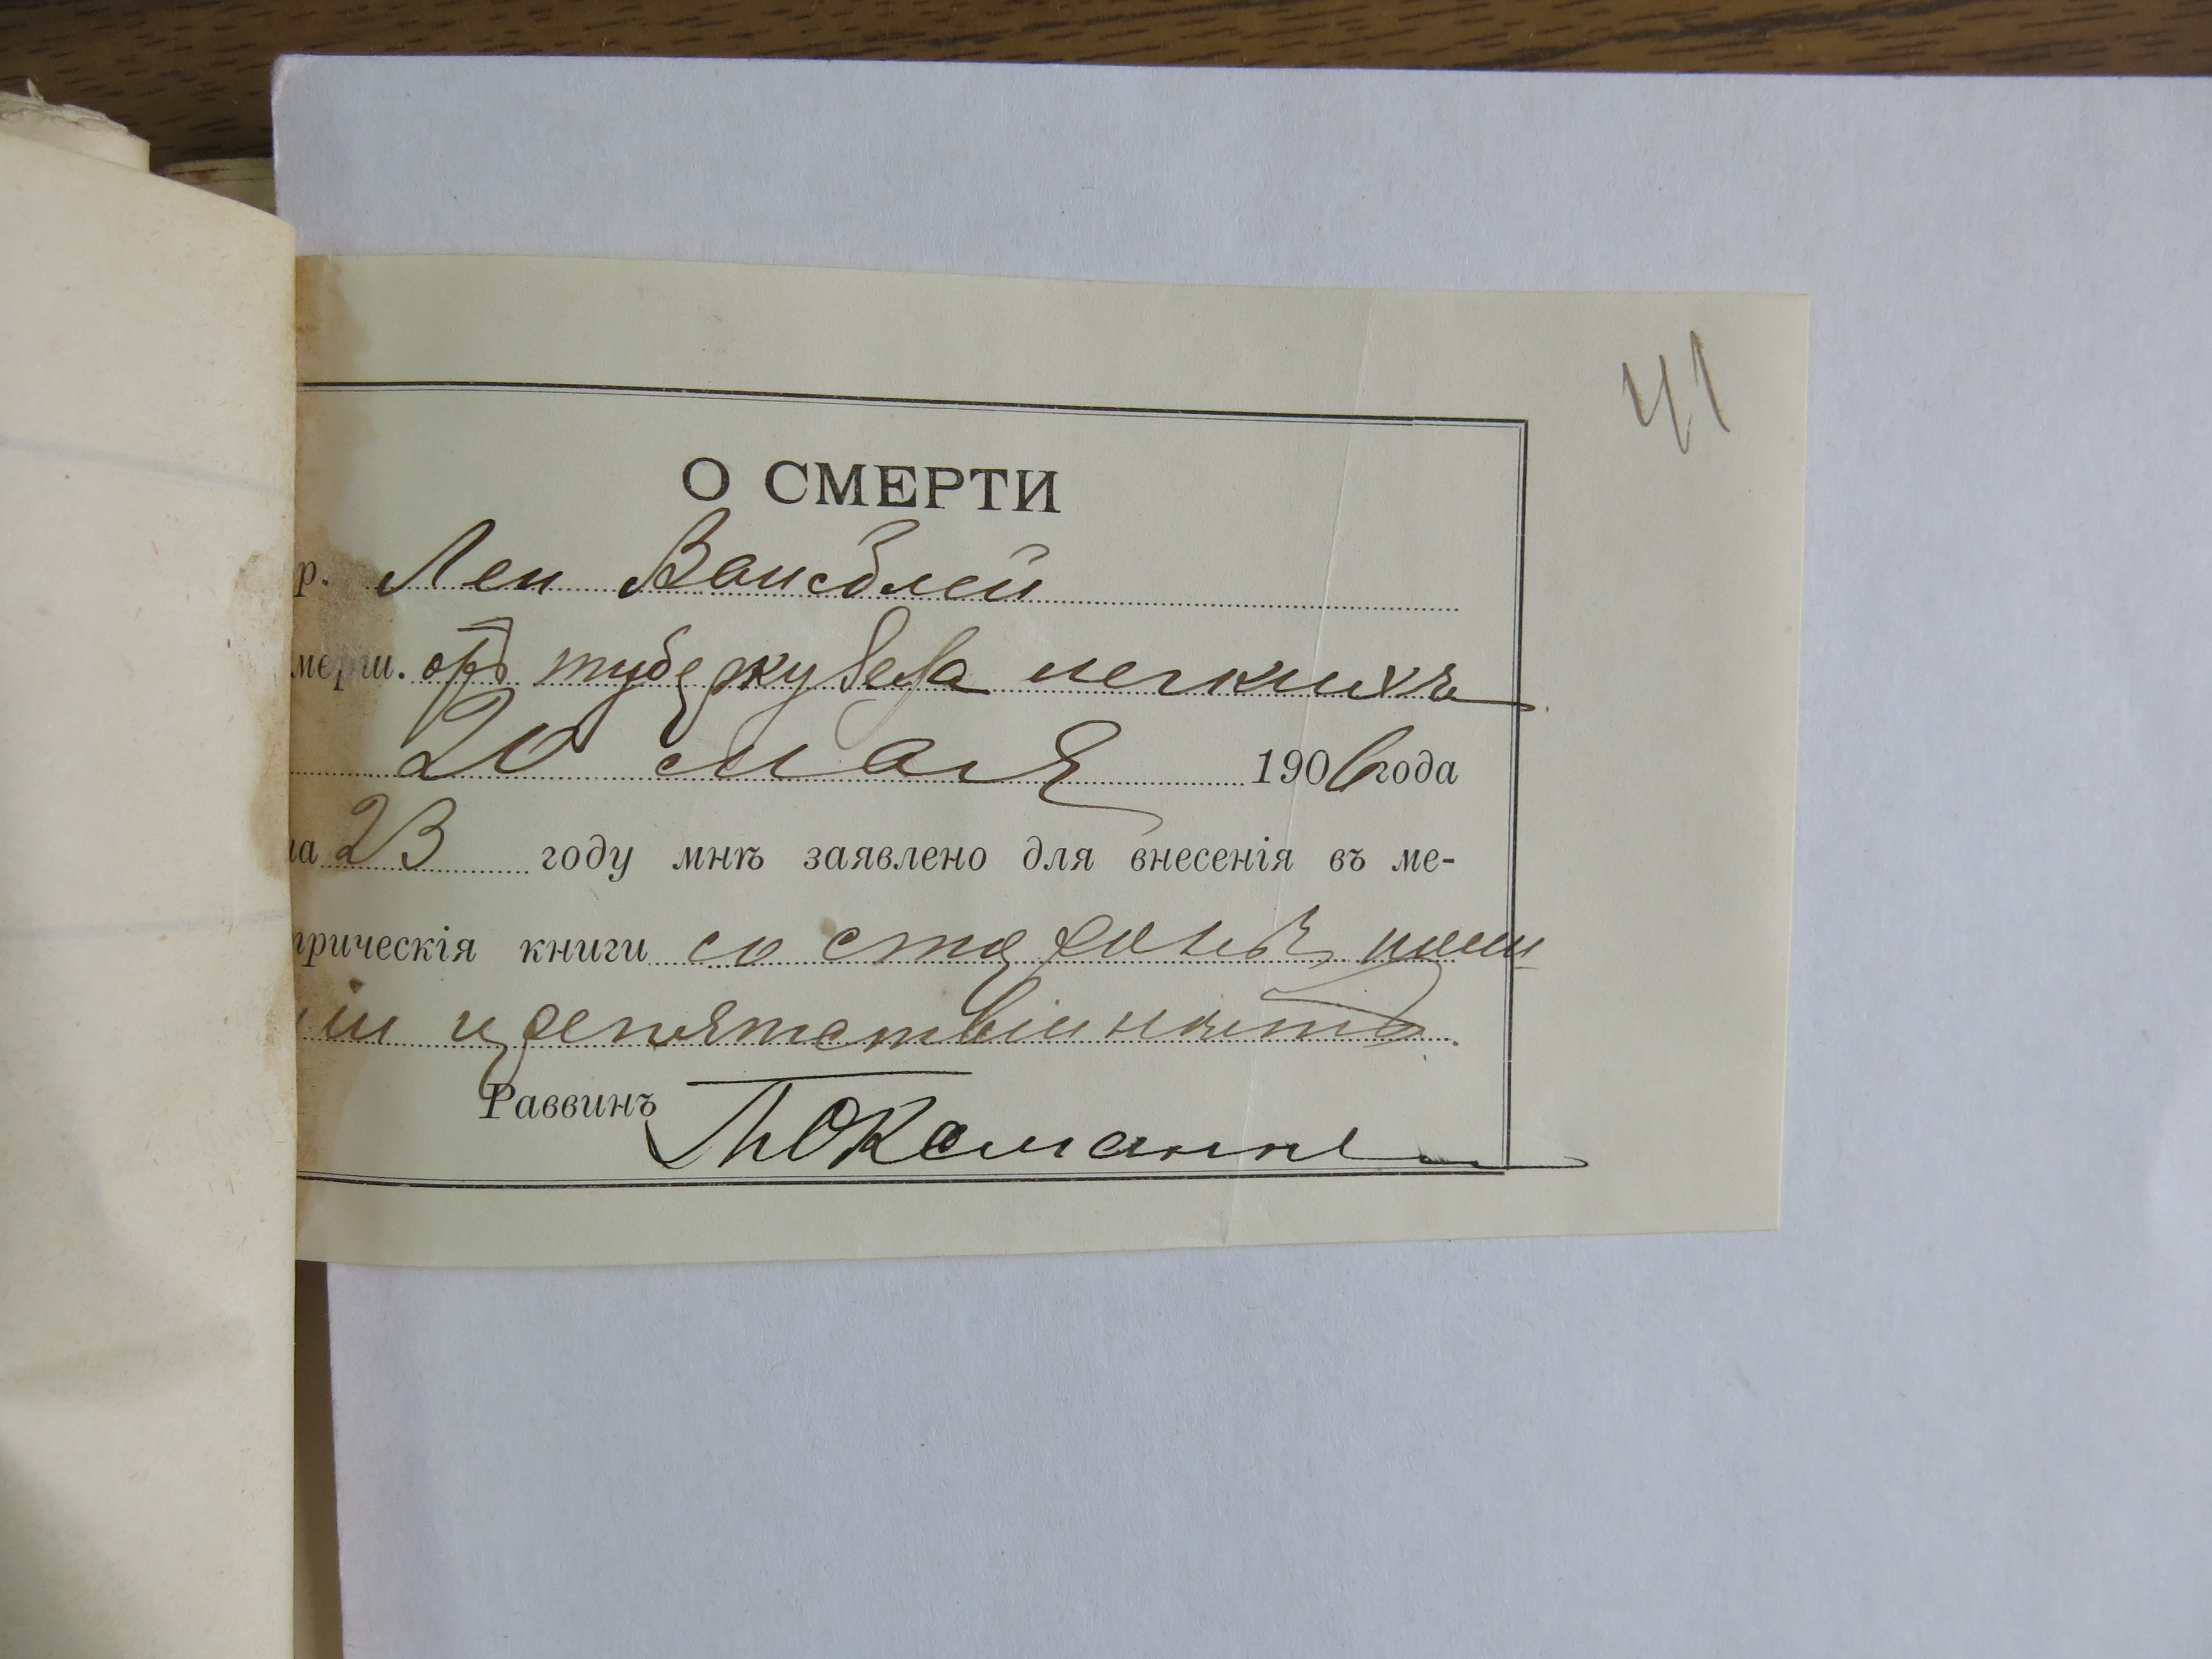 41
О СМЕРТИ
р. Леи Вайсблей
мерш. отъ туберкулеза легкихъ
20 мая 1906 года
на 23 году мнѣ заявлено для внесенія въ ме-
трическія книги со стороны поли
ціи препятствій нѣтъ.
Раввинъ